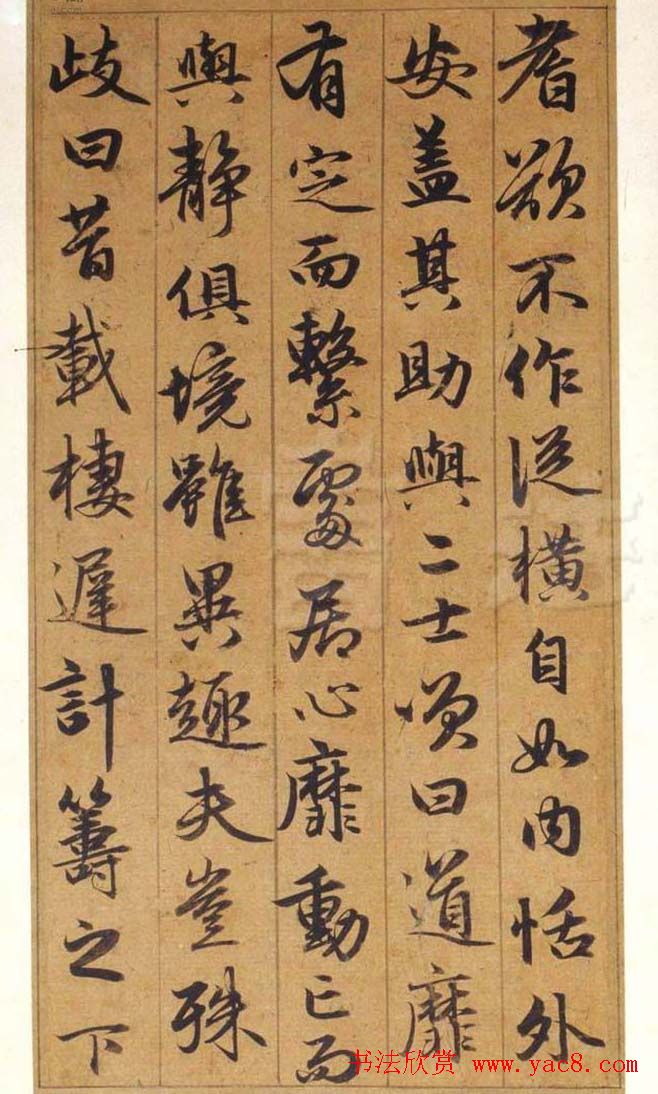 耆欲不作從橫自如内恬外
安蓋其助與二士曰道靡
有定而繫處居心靡動而
與靜俱境雖異趣夫豈殊
歧曰昔載棲遲計籌之下
书法欣赏 www.yac8.com